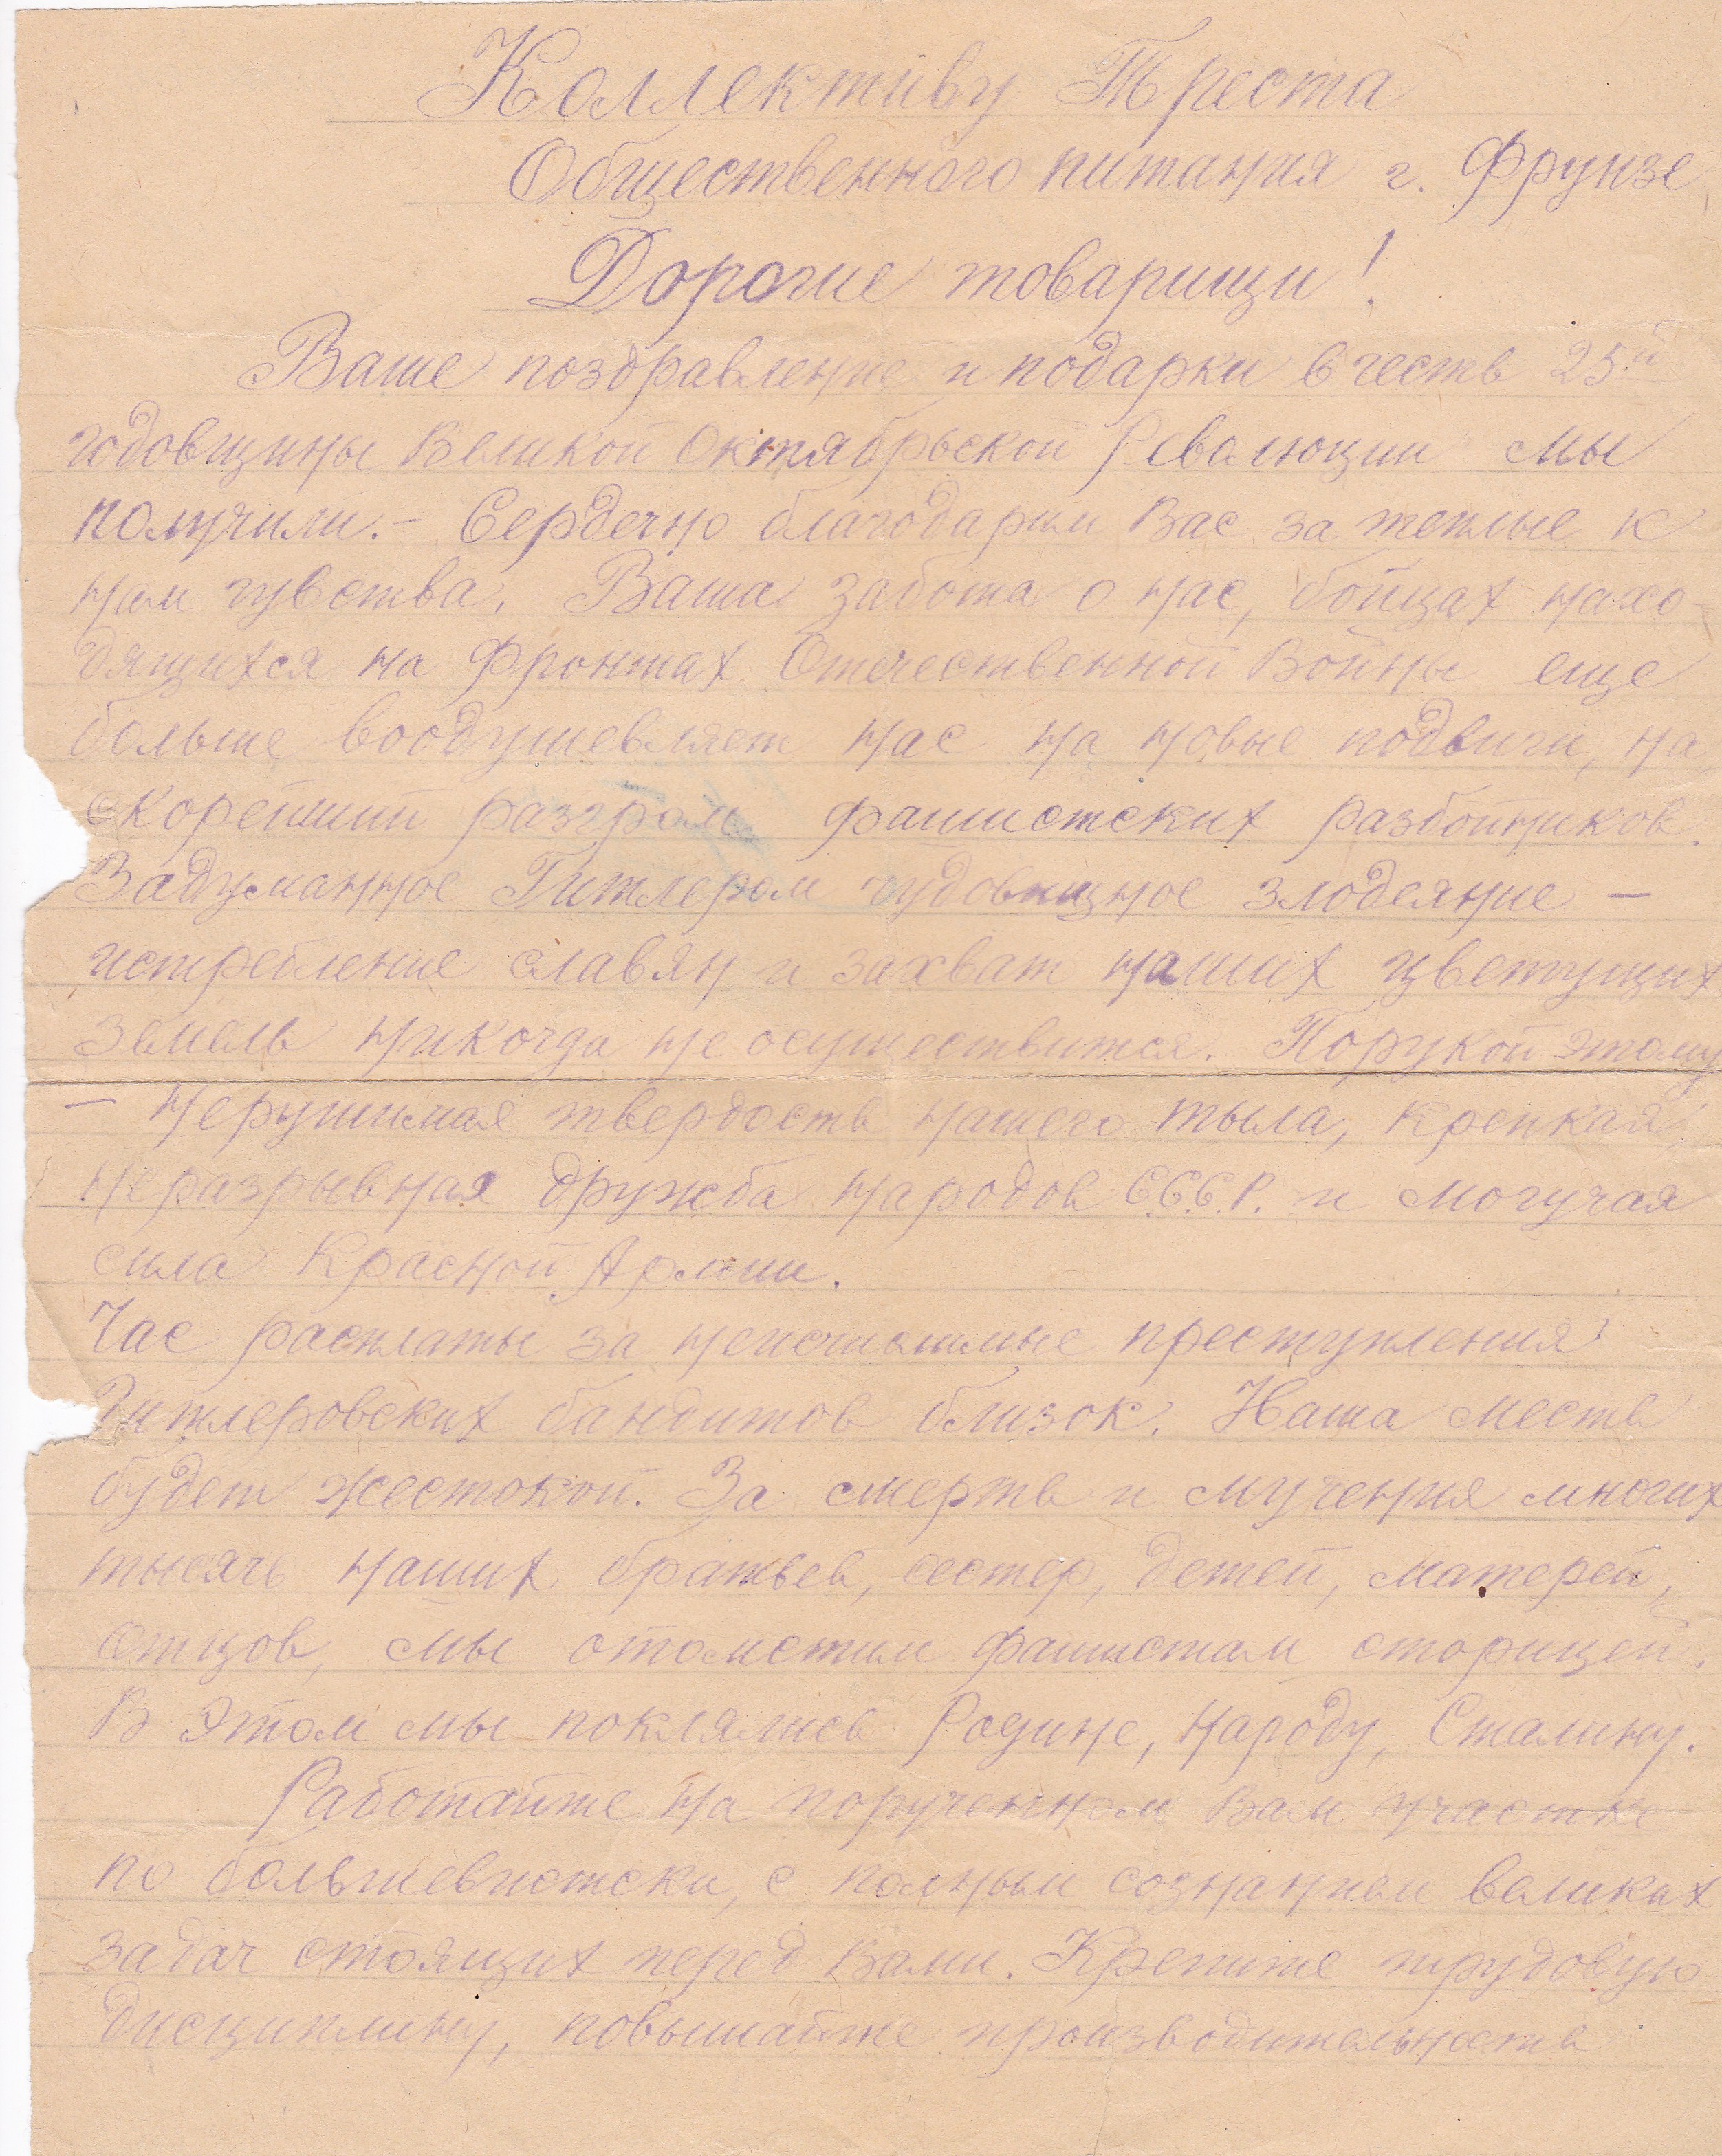 Коллективу Треста
Общественного питания г. Фрунзе
Дорогие товарищи!
Ваше поздравление и подарки в честь 25й
годовщины Великой Октябрьской Революции мы
получили. - Сердечно благодарим Вас за теплые к
нам чувства. Ваша забота о нас, бойцах нахо-
дящихся на фронтах Отечественной Войны еще
больше воодушевляет нас на новые подвиги, на
скорейший разгром фашистских разбойников.
Задуманное Гитлером чудовищное злодеяние —
истребление славян и захват наших цветущих
земель никогда не осуществится. Порукой этому
— нерушимая твердость нашего тыла, крепкая,
неразрывная дружба народов С.С.С.Р. и могучая
сила Красной Армии.
Час расплаты за неисчислимые преступления
Гитлеровских бандитов близок. Наша месть
будет жестокой. За смерть и мучения многих
тысячь наших братьев, сестер, детей, матерей,
отцов, мы отомстим фашистам сторицей.
В этом мы поклялись Родине, народу, Сталину.
Работайте на порученном Вам участке
по большевистски, с полным сознанием великих
задач стоящих перед Вами. Крепите трудовую
дисциплину, повышайте производительность